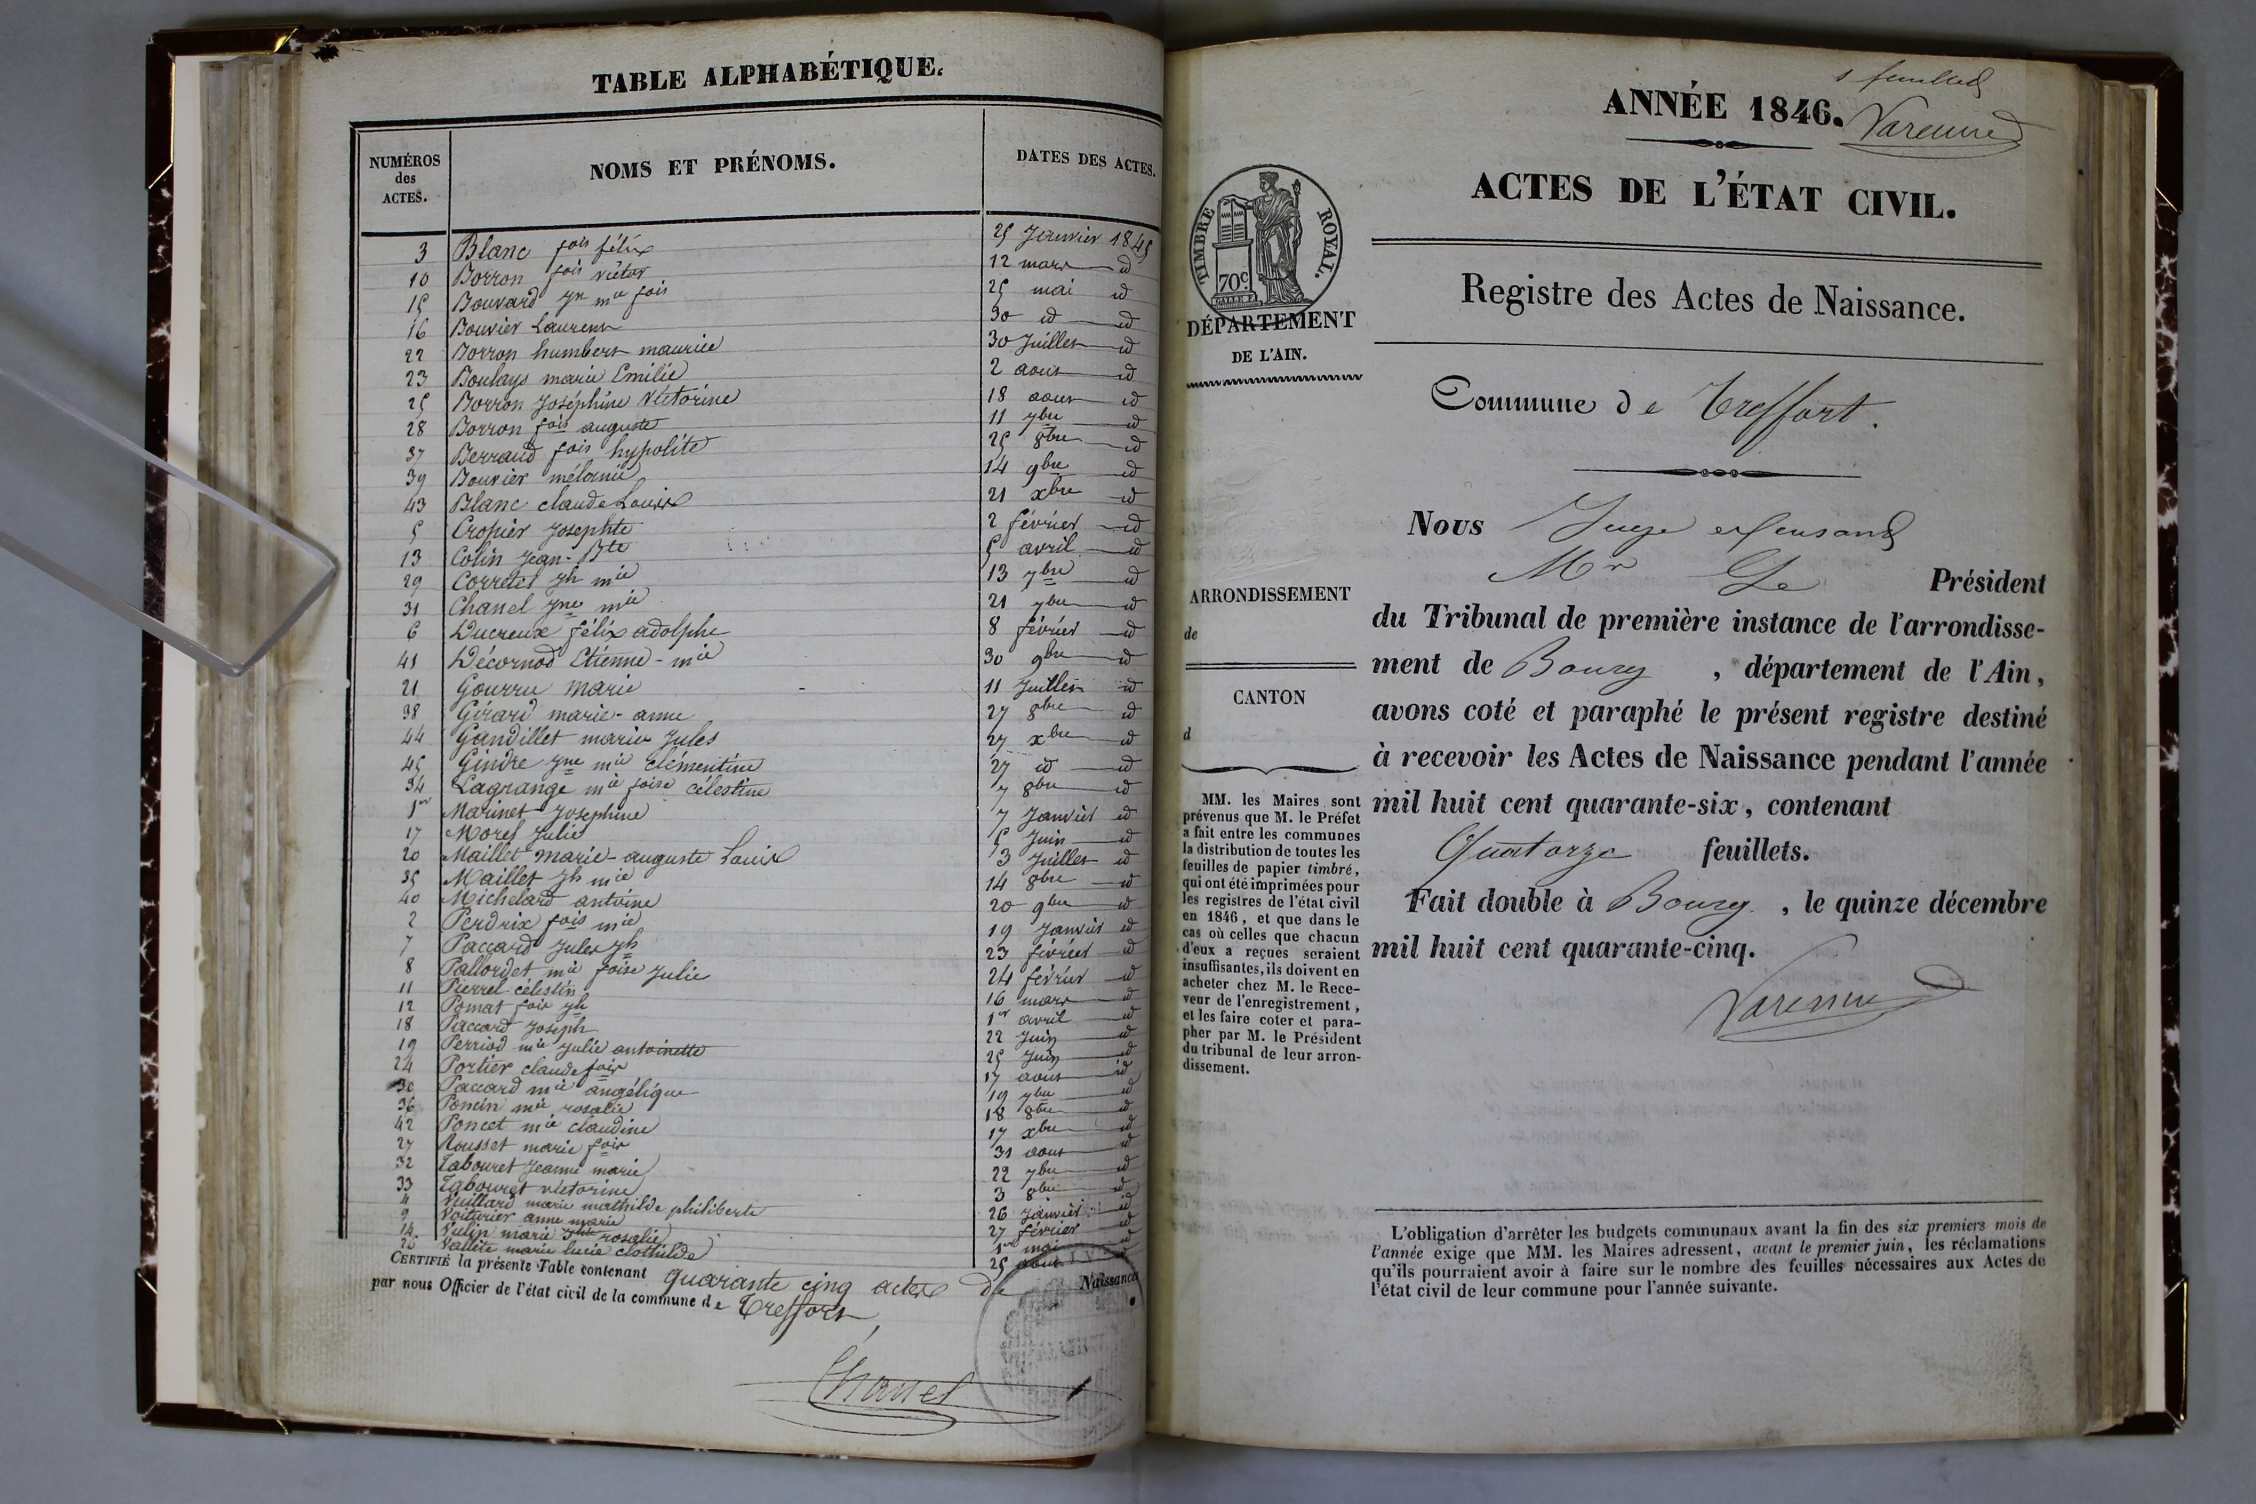 TABLE ALPHABÉTIQUE.
NUMÉROS des ACTES.
NOMS ET PRÉNOMS.
DATES DES ACTES.
3 Blanc fois félix 25 Janvier 1845
10 Borron fois victor 12 mars id
15 Bouvard Jn mie fois 25 mai id
16 Bouvier Laurent 30 id id
22 Borron humbert maurice 30 Juillet id
23 Boulays marie Emilie 2 aout id
25 Borron Joséphine Victorine 18 aout id
28 Borron fois auguste 11 7bre id
37 Berraud fois hypolite 25 8bre id
39 Bouvier mélanie 14 9bre id
43 Blanc claude Louis 21 xbre id
5 Cropier Josephte 2 février id
13 Colin Jean-Bte 5 avril id
29 Corretel Jh mie 13 7bre id
31 Chanel Jne mie 21 7bre id
6 Ducreux félix adolphe 8 février id
41 Décornod Etienne-mie 30 9bre id
21 Gourru marie 11 Juillet id
38 Girard marie-anne 27 8bre id
44 Gandillet marie Jules 27 xbre id
45 Gindre Jne mie clémentine 27 id id
34 Lagrange mie foise célestine 7 8bre id
1er Marinet Josephine 7 Janvier id
17 Morel Julie 5 Juin id
20 Maillet marie-auguste Louis 3 Juillet id
35 Maillet Jh mie 14 8bre id
40 Michelard antoine 20 9bre id
2 Perdrix fois mie 19 Janvier id
7 Paccard Jules Jh 23 février id
8 Pallordet mie foise Julie 24 février id
11 Pierrel célestin 16 mars id
12 Pomat fois Jh 1er avril id
18 Paccard Joseph 22 Juin id
19 Perriod mie Julie antoinette 25 Juin id
24 Portier claude fois 17 aout id
30 Paccard mie angélique 19 7bre id
36 Poncin mie rosalie 18 8bre id
42 Poncet mie claudine 17 xbre id
27 Rousset marie fois 31 aout id
32 Tabouret Jeanne marie 22 7bre id
33 Tabouret victorine 3 8bre id
4 Vuillard marie mathilde philiberte 26 Janvier id
9 Voiturier anne marie 27 février id
14 Vulin marie rosalie 1er mai id
26 Vallite marie lucie clothilde 25 aout
CERTIFIÉ la présente Table contenant quarante cinq actes de Naissance
par nous Officier de l'état civil de la commune de Treffort,
Chanel
1 feuillet
ANNÉE 1846.
Varenne
ACTES DE L'ÉTAT CIVIL.
TIMBRE ROYAL.
70c
Registre des Actes de Naissance.
DÉPARTEMENT
DE L'AIN.
Commune de Treffort.
ARRONDISSEMENT
de
CANTON
d
MM. les Maires sont
prévenus que M. le Préfet
a fait entre les communes
la distribution de toutes les
feuilles de papier timbré,
qui ont été imprimées pour
les registres de l'état civil
en 1846, et que dans le
cas où celles que chacun
d'eux a reçues seraient
insuffisantes, ils doivent en
acheter chez M. le Rece-
veur de l'enregistrement,
et les faire coter et para-
pher par M. le Président
du tribunal de leur arron-
dissement.
Nous Juge
Mr Le Président
du Tribunal de première instance de l'arrondisse-
ment de Bourg, département de l'Ain,
avons coté et paraphé le présent registre destiné
à recevoir les Actes de Naissance pendant l'année
mil huit cent quarante-six, contenant
Quatorze feuillets.
Fait double à Bourg, le quinze décembre
mil huit cent quarante-cinq.
Varenne
L'obligation d'arrêter les budgets communaux avant la fin des six premiers mois de
l'année exige que MM. les Maires adressent, avant le premier juin, les réclamations
qu'ils pourraient avoir à faire sur le nombre des feuilles nécessaires aux Actes de
l'état civil de leur commune pour l'année suivante.